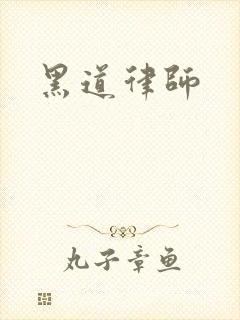 黑道律師
丸子章鱼